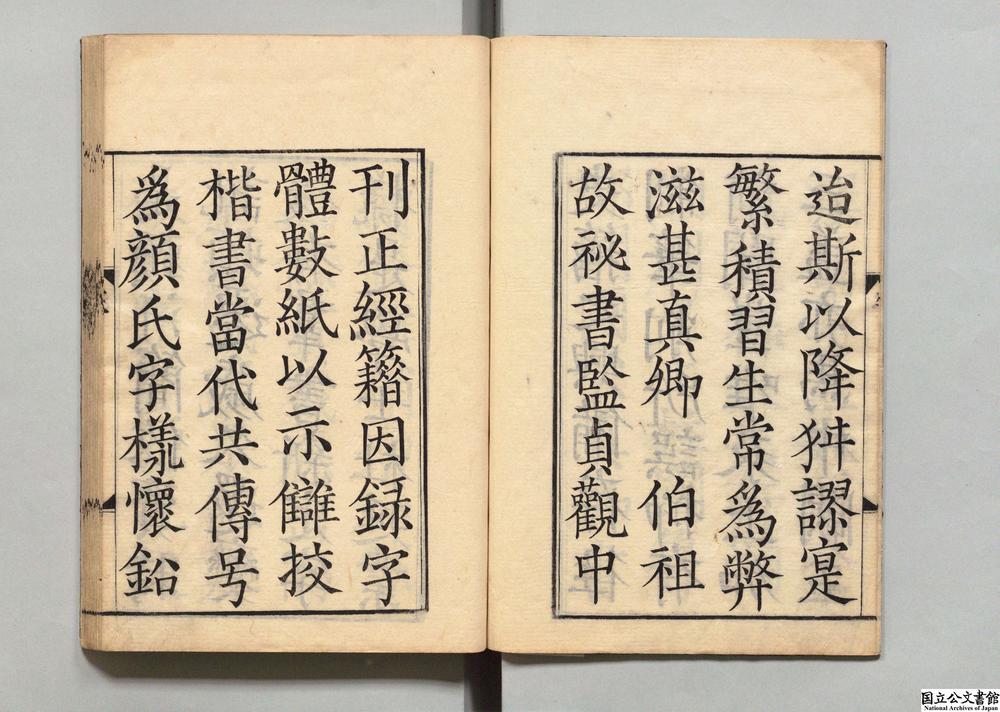 迨斯以降舛謬寔
繁積習生常爲弊
滋甚真卿伯祖
故祕書監貞觀中
刊正經籍因録字
體數紙以示讎挍
楷書當代共傳号
爲顔氏字樣懷鈆
国立公文書館
National Archives of Japan